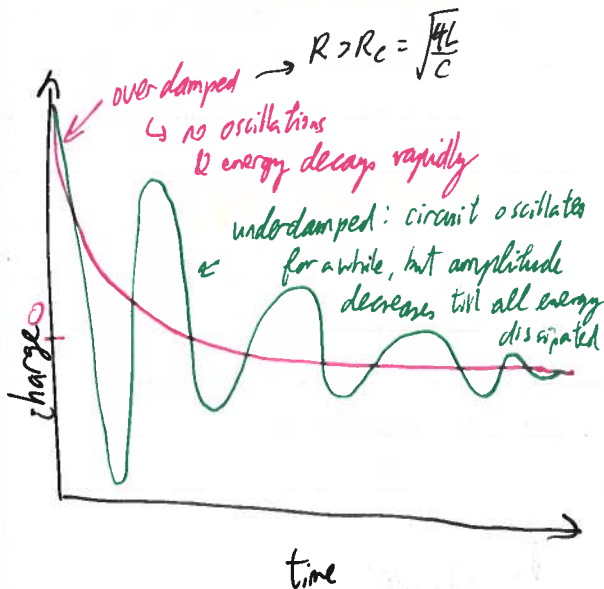 overdamped → R > Rc = √4L/C
↳ no oscillations
& energy decays rapidly
underdamped: circuit oscillates
for a while, but amplitude
decreases till all energy
dissipated
0
charge
time